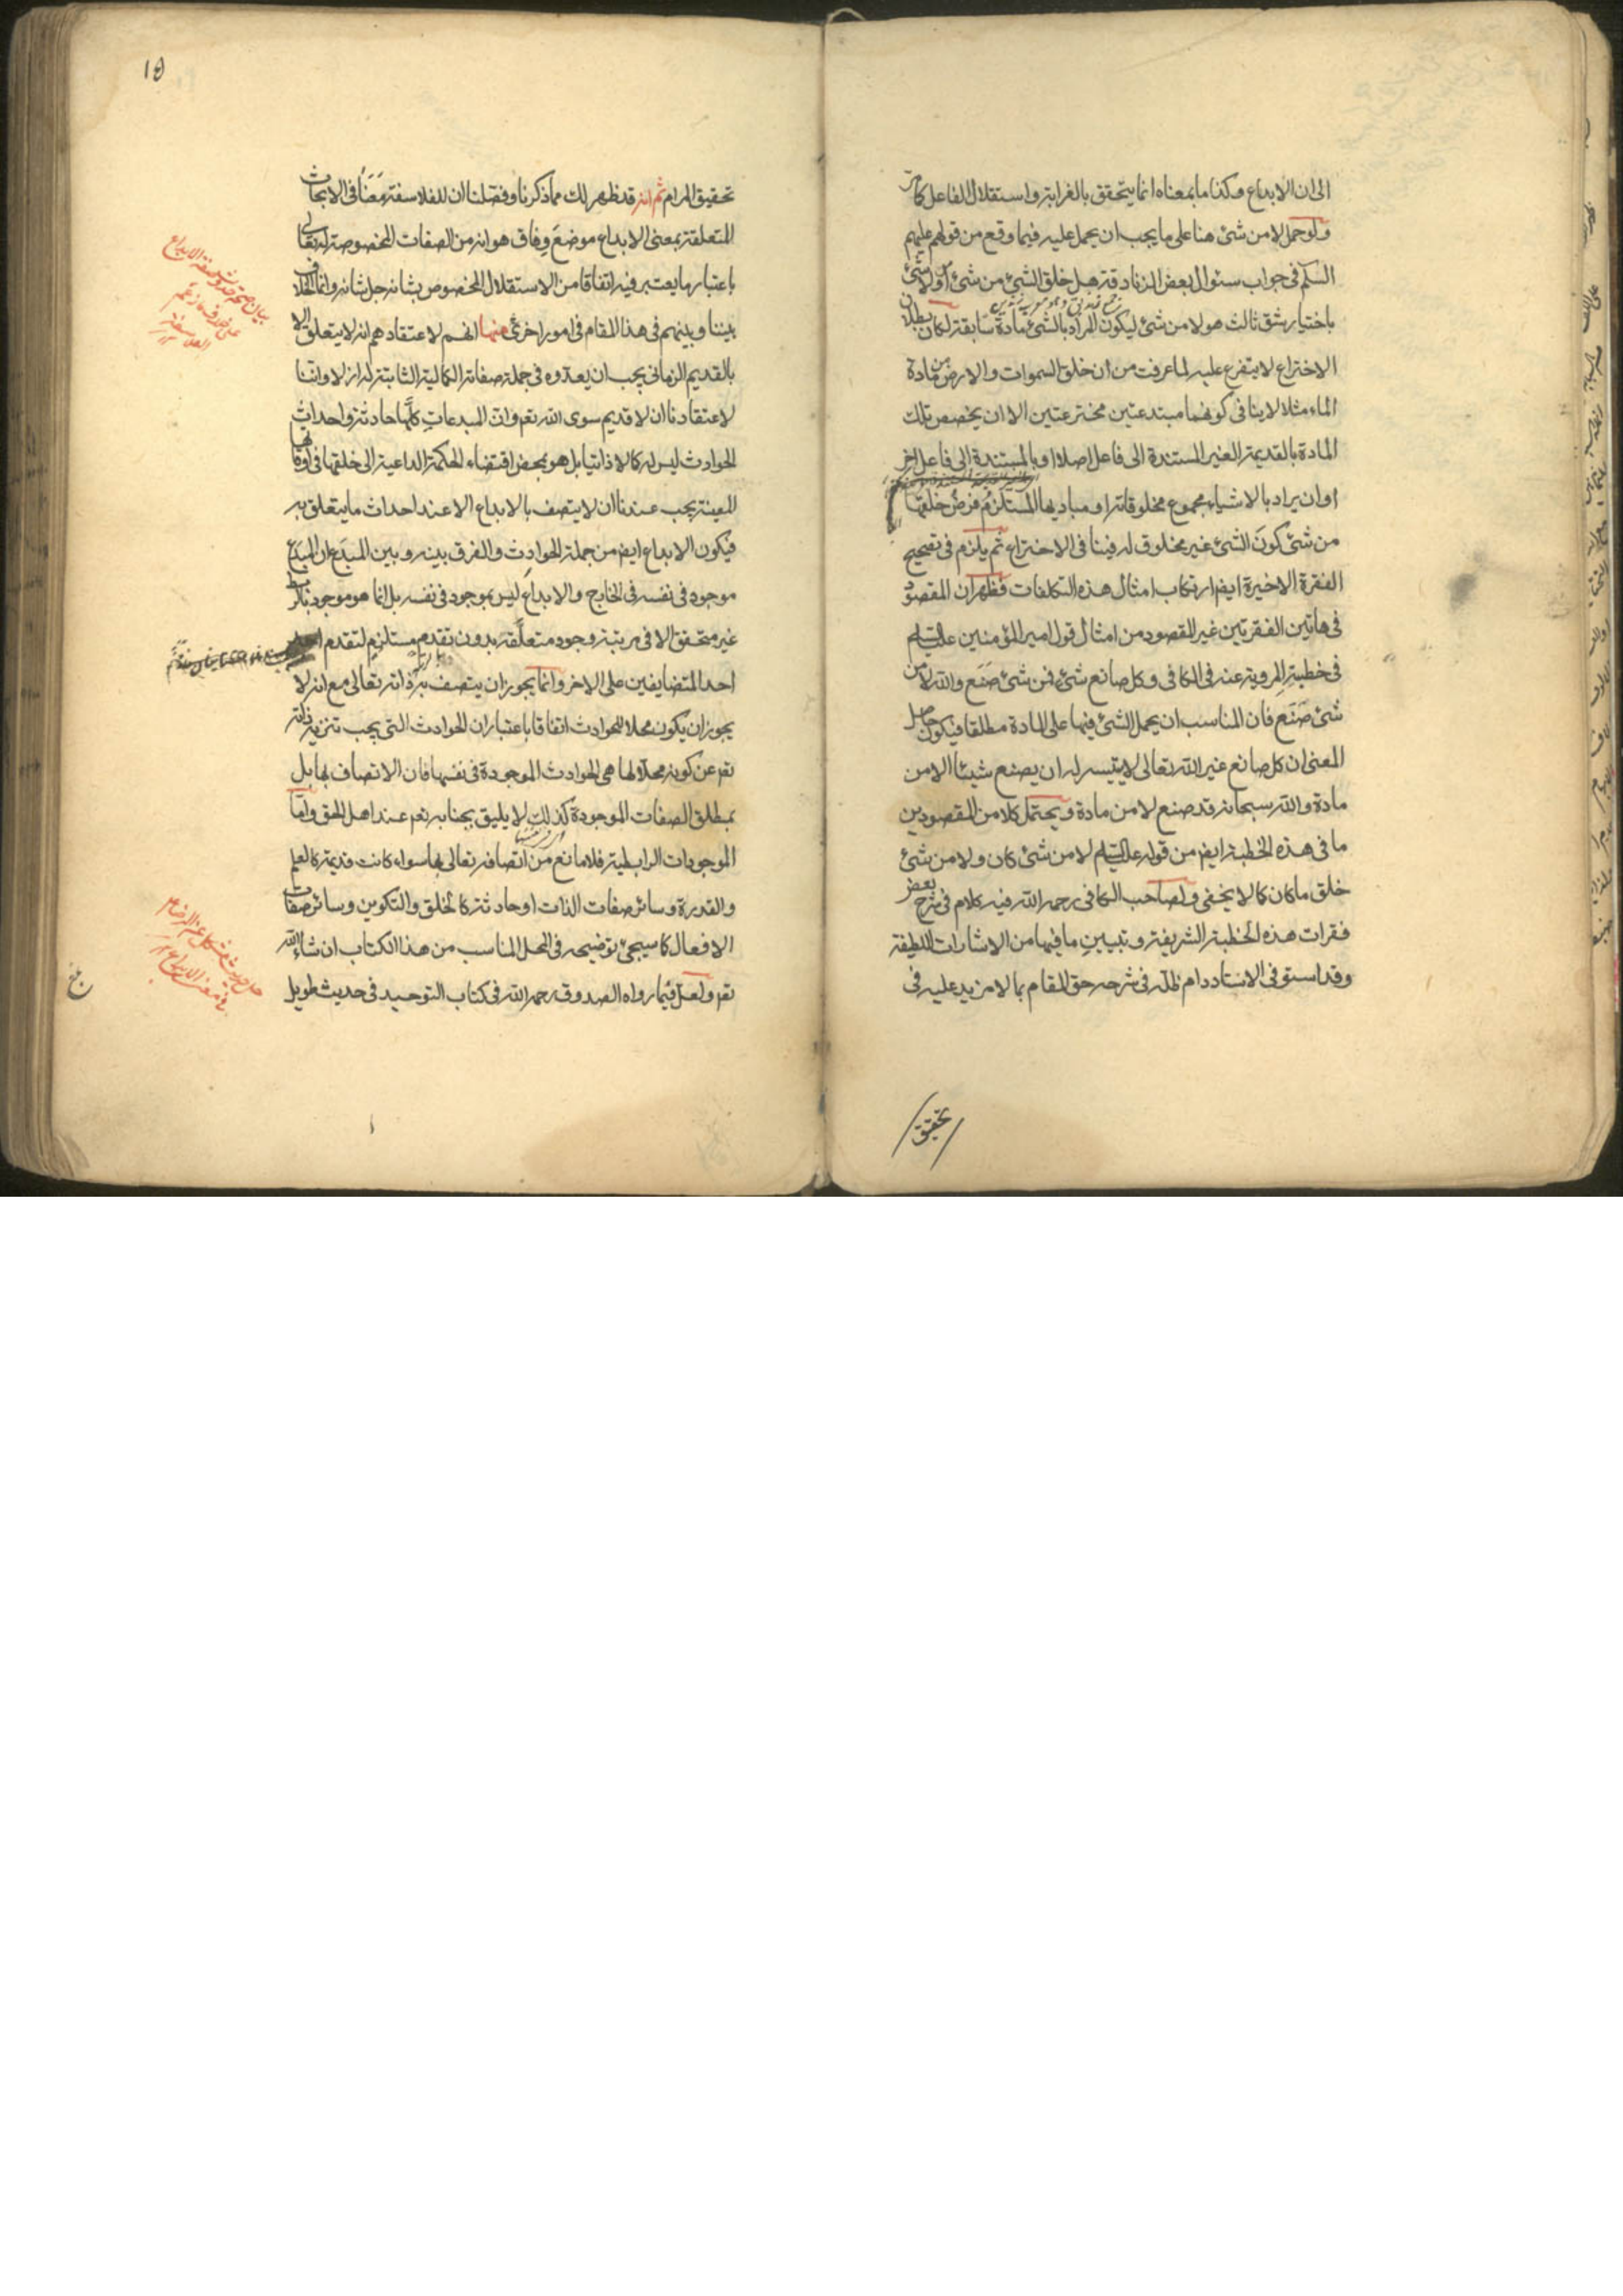 الى ان الابداع وكذا ما بمعناه انما يتحقق بالغرابة واستقلال الفاعل كما مر
ولو حمل لا من شئ هنا على ما يجب ان يحمل عليه فيما وقع من قولهم عليهم
السلم فى جواب سئوال بعض الزنادقة هل خلق الشئ من شئ او من لا شئ
باختيار شق ثالث هو لا من شئ ليكون المراد بالشئ مادة سابقة لكان بطلان
الاختراع لا يتفرع عليه لما عرفت من ان خلق السموات والارض من مادة
الماء مثلا لا ينافى كونهما مبتدعتين مخترعتين الا ان يخصص تلك
المادة بالقديمة الغير المستندة الى فاعل اصلا او بالمستندة الى فاعل اخر
او ان يراد بالاشياء مجموع مخلوقاته او مباديها المستلزم فرض خلقها
من شئ كون الشئ غير مخلوق له فينافى الاختراع ثم يلزم فى تصحيح
الفقرة الاخيرة ايضا ارتكاب امثال هذه التكلفات فظهر ان المقصود
فى هاتين الفقرتين غير المقصود من امثال قول امير المؤمنين عليه السلام
فى خطبته المروية عنه فى الكافى وكل صانع شئ فمن شئ صَنَع والله لا من
شئ صَنَع فان المناسب ان يحمل الشئ فيها على المادة مطلقا فيكون حاصل
المعنى ان كل صانع غير الله تعالى لا يتيسر له ان يصنع شيئا الا من
مادة والله سبحانه قد صنع لا من مادة ويحتمل كلا من المقصودين
ما فى هذه الخطبة ايضا من قوله عليه السلام لا من شئ كان ولا من شئ
خلق ما كان كما لا يخفى ولصاحب الكافى رحمه الله فيه كلام فى شرح بعض
فقرات هذه الخطبة الشريفة وتبيين ما فيها من الاشارات اللطيفة
وقد استوفى الاستاد دام ظله فى شرحه حق المقام بما لا مزيد عليه فى
تحقيق
تحقيق المرام ثم انه قد ظهر لك مما ذكرنا وفصلنا ان للفلاسفة مَعَنَا فى الابحاث
المتعلقة بمعنى الابداع موضع وفاق هو انه من الصفات المخصوصة له تعالى
باعتبار ما يعتبر فيه اتفاقا من الاستقلال المخصوص بشانه جل شانه وانما الخلاف
بيننا وبينهم فى هذا المقام فى امور اخرى منها انهم لاعتقادهم انه لا يتعلق الا
بالقديم الزمانى يجب ان يعدّوه فى جملة صفاته الكمالية الثابتة له ازلا واننا
لاعتقادنا ان لا قديم سوى الله تعم وان المبدعات كلها حادثة واحداث
الحوادث ليس له كمالا ذاتيا بل هو بمحض اقتضاء الحكمة الداعية الى خلقها فى اوقاتها
المعينة يجب عندنا ان لا يتصف بالابداع الا عند احداث ما يتعلق به
فيكون الابداع ايضا من جملة الحوادث والفرق بينه وبين المبدَع ان المبدَع
موجود فى نفسه فى الخارج والابداع ليس بموجود فى نفسه بل انما هو موجود بالربط
غير متحقق الا فى مرتبة وجود متعلَّقه بدون تقدم مستلزم لتقدم
احد المتضايفين على الاخر وانما يجوز ان يتصف به ذاته تعالى مع انه لا
يجوز ان يكون محلا للحوادث اتفاقا باعتبار ان الحوادث التى يجب تنزيه ذاته
تعم عن كونه محلا لها هى الحوادث الموجودة فى نفسها فان الاتصاف بها بل
بمطلق الصفات الموجودة كذلك لا يليق بجنابه تعم عند اهل الحق واما
الموجودات الرابطية فلا مانع من اتصافه تعالى بها سواء كانت قديمة كالعلم
والقدرة وسائر صفات الذات او حادثة كالخلق والتكوين وسائر صفات
الافعال كما سيجئ توضيحه فى المحل المناسب من هذا الكتاب ان شاء الله
تعم ولعل فيما رواه الصدوق رحمه الله فى كتاب التوحيد فى حديث طويل
بيان صحة حدوث صفة الابداع
على خلاف ما زعم
الفلاسفة
حل حديث مشكل عن الرضا ع
فى معنى الابداع